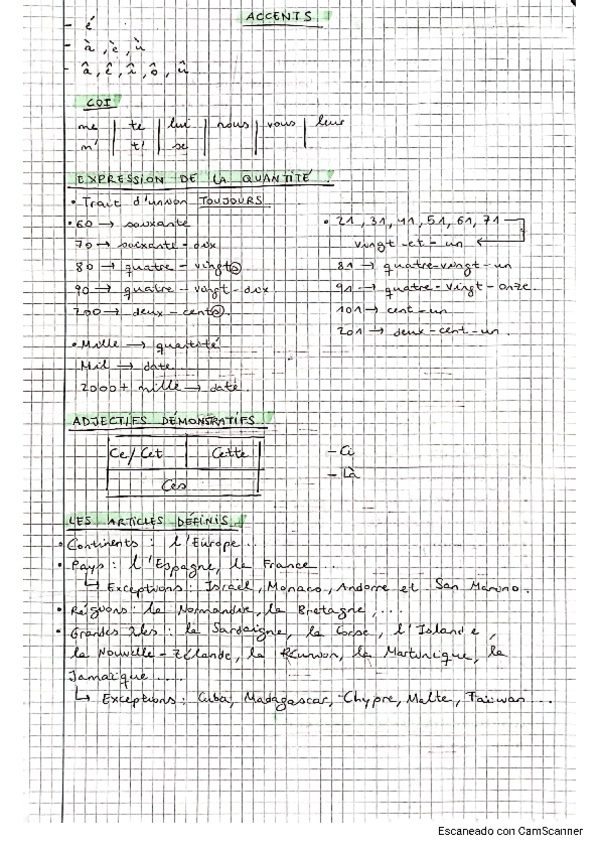 ACCENTS
- é
- à, è, ù
- â, ê, î, ô, û
COI
me | te | lui | nous | vous | leur
m' | t' | se
EXPRESSION DE LA QUANTITÉ.
• Trait d'union TOUJOURS
• 60 → soixante
70 → soixante-dix
80 → quatre-vingts
90 → quatre-vingt-dix
200 → deux-cents.
• 21, 31, 41, 51, 61, 71
vingt-et-un ←
81 → quatre-vingt-un
91 → quatre-vingt-onze.
101 → cent-un
201 → deux-cent-un.
• Mille → quantité
Mil → date
2000+ mille → date.
ADJECTIFS DÉMONSTRATIFS
Ce/Cet | Cette
Ces
- Ci
- Là
LES ARTICLES DÉFINIS
• Continents : l'Europe...
• Pays : l'Espagne, la France...
↳ Exceptions : Israel, Monaco, Andorre et San Marino.
• Régions : la Normandie, la Bretagne, ...
• Grandes îles : la Sardaigne, la Corse, l'Islande,
la Nouvelle-Zélande, la Réunion, la Martinique, la
Jamaïque .....
↳ Exceptions : Cuba, Madagascar, Chypre, Malte, Taïwan...
Escaneado con CamScanner